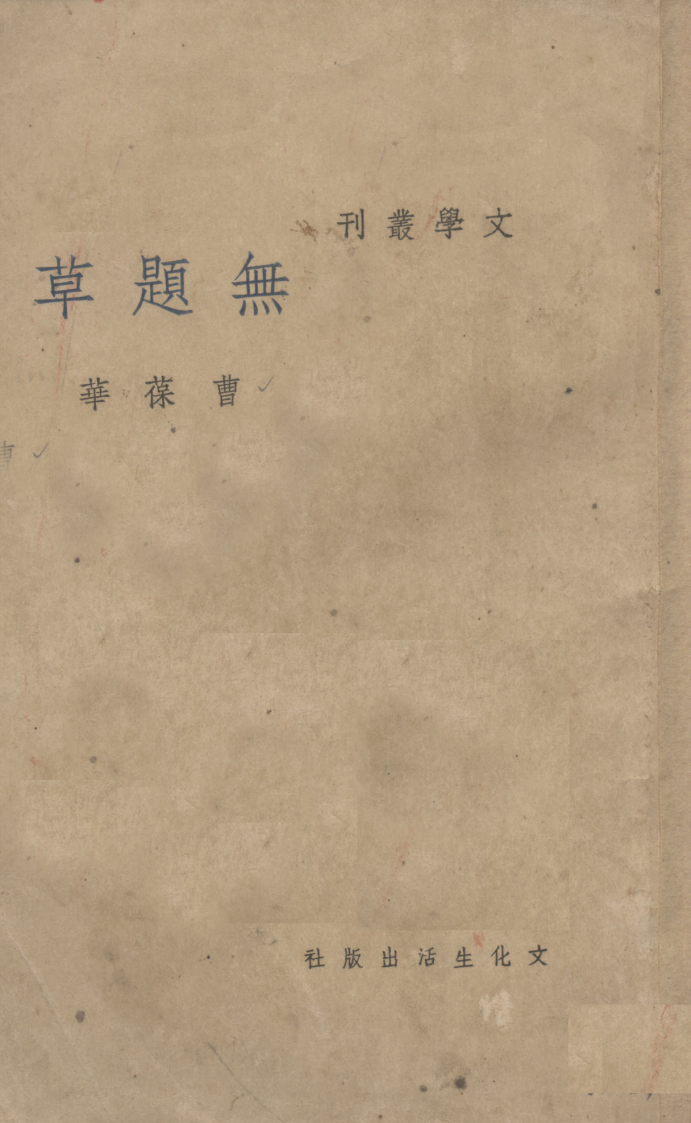 文學叢刊
無題草
曹葆華
文化生活出版社